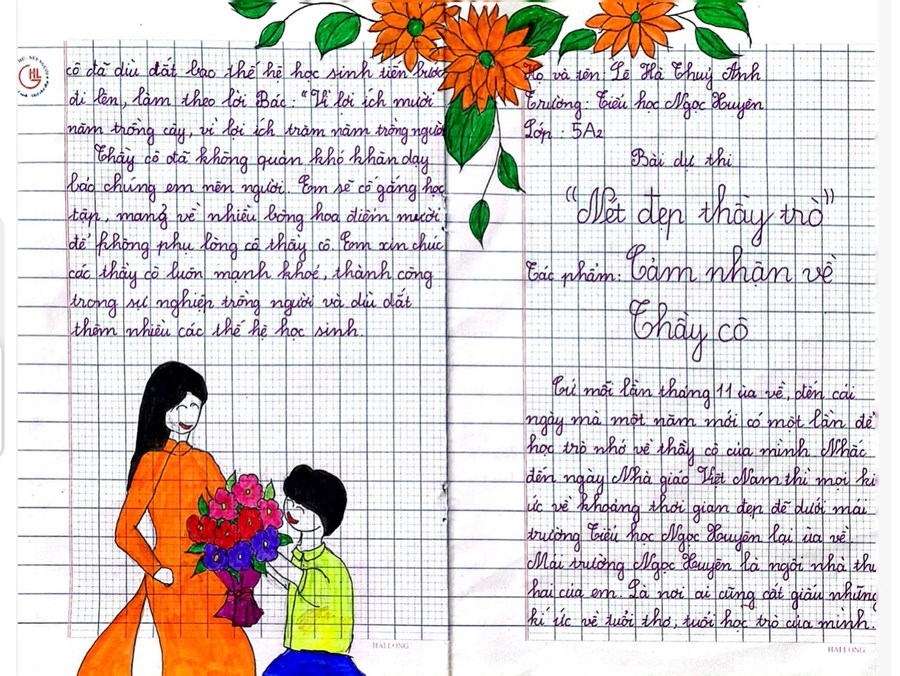 cô đã dìu dắt bao thế hệ học sinh tiến bước
đi lên, làm theo lời Bác: "Vì lợi ích mười
năm trồng cây, vì lợi ích trăm năm trồng người
Thầy cô đã không quản khó khăn dạy
bảo chúng em nên người. Em sẽ cố gắng học
tập, mang về nhiều bông hoa điểm mười
để không phụ lòng cô thầy cô. Em xin chúc
các thầy cô luôn mạnh khoẻ, thành công
trong sự nghiệp trồng người và dìu dắt
thêm nhiều các thế hệ học sinh.
HAI LONG
Họ và tên: Lê Hà Thuỳ Anh
Trường: Tiểu học Ngọc Xuyên
Lớp: 5A2
Bài dự thi
"Nét đẹp thầy trò"
Tác phẩm: Cảm nhận về
Thầy cô
Cứ mỗi lần tháng 11 ùa về, đến cái
ngày mà một năm mới có một lần để
học trò nhớ về thầy cô của mình Nhắc
đến ngày Nhà giáo Việt Nam thì mọi kí
ức về khoảng thời giam đẹp đẽ dưới mái
trường Tiểu học Ngọc Xuyên lại ùa về
Mái trường Ngọc Xuyên là ngôi nhà thứ
hai của em. Là nơi ai cũng cất giấu những
kí ức về tuổi thơ, tuổi học trò của mình.
HAI LONG